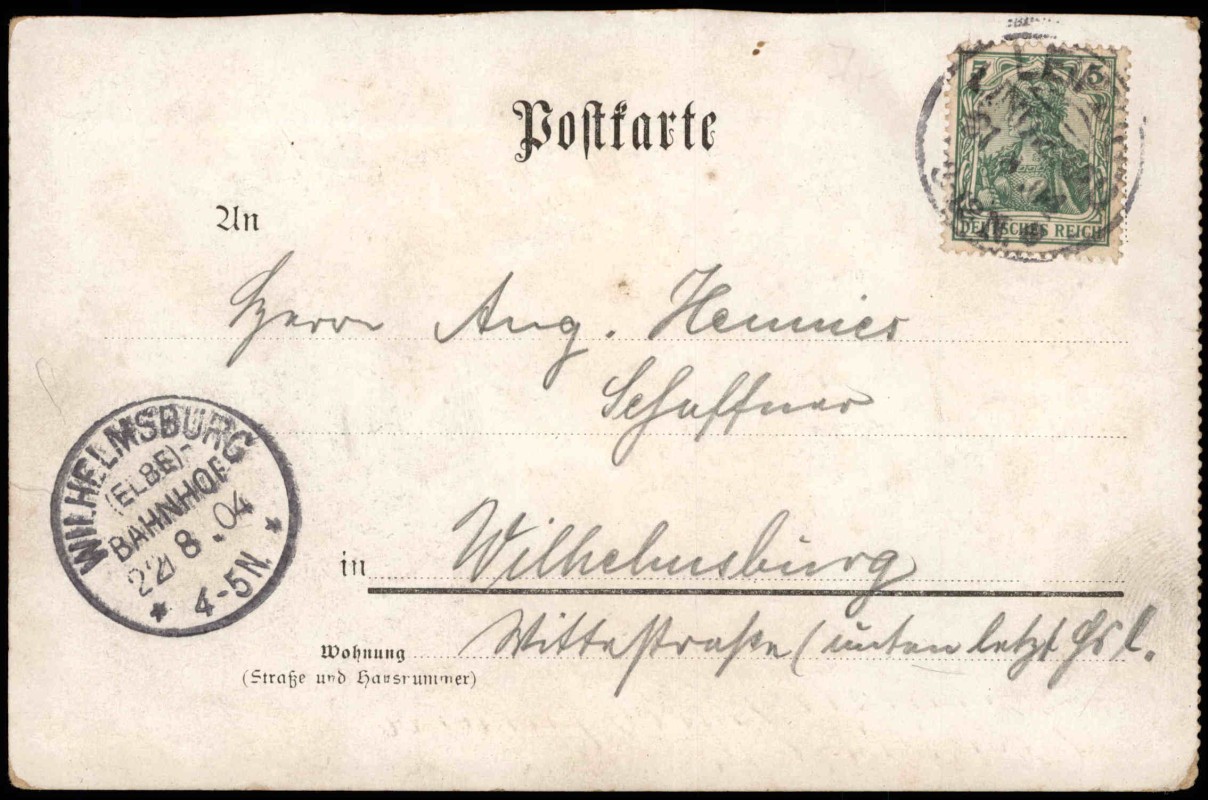 Postkarte
5 5
DEUTSCHES REICH
An
Herrn Aug. Hennies
Schaffner
WILHELMSBURG
(ELBE)-
BAHNHOF
22 8 . 04
* 4-5N. *
in Wilhelmsburg
Wohnung Wittestraße (unten letzt Hs l.
(Straße und Hausnummer)